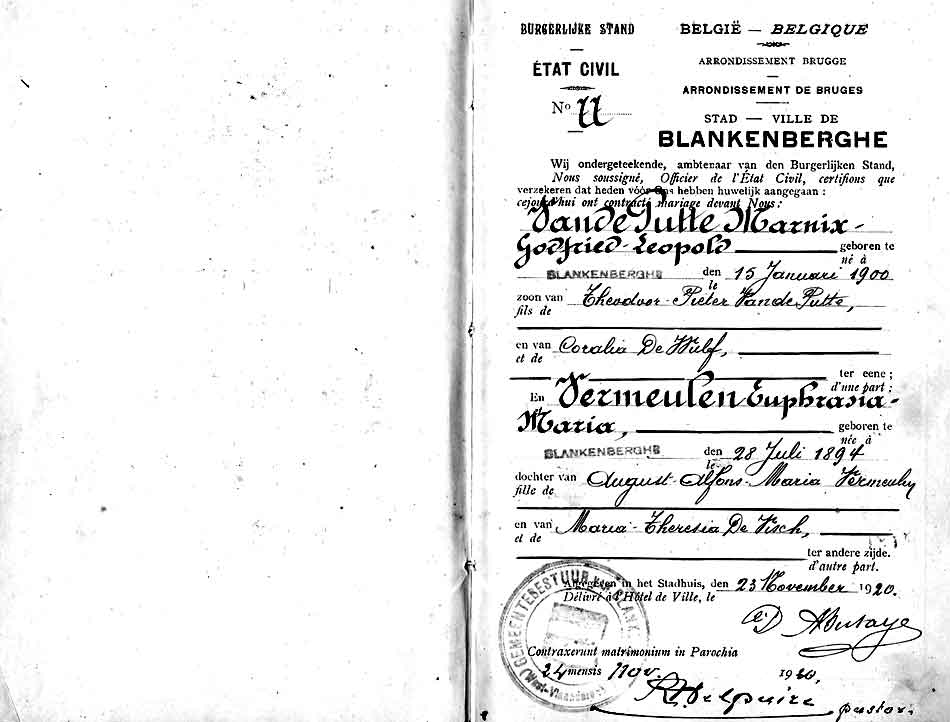 BURGERLIJKE STAND
ÉTAT CIVIL
No 77
BELGIË — BELGIQUE
ARRONDISSEMENT BRUGGE
ARRONDISSEMENT DE BRUGES
STAD — VILLE DE
BLANKENBERGHE
Wij ondergeteekende, ambtenaar van den Burgerlijken Stand,
Nous soussigné, Officier de l'État Civil, certifions que
verzekeren dat heden vóór Ons hebben huwelijk aangegaan :
cejourd'hui ont contracté mariage devant Nous :
Vande Putte Marnix-
Godfried-Leopold geboren te
né à
BLANKENBERGHE den 15 Januari 1900
le
zoon van Theodoor-Pieter Vande Putte,
fils de
en van Coralia De Wulf,
et de
ter eene ;
d'une part ;
En Vermeulen Euphrasia-
Maria, geboren te
née à
BLANKENBERGHE den 28 Juli 1894
le
dochter van August-Alfons-Maria Vermeulen
fille de
en van Maria-Theresia De Visch,
et de
ter andere zijde.
d'autre part.
Afgegeven in het Stadhuis, den 23 November 1920.
Délivré à l'Hôtel de Ville, le
GEMEENTEBESTUUR
Contraxerunt matrimonium in Parochia
24 mensis Nov. 1920.
pastor.
(West-Vlaanderen)